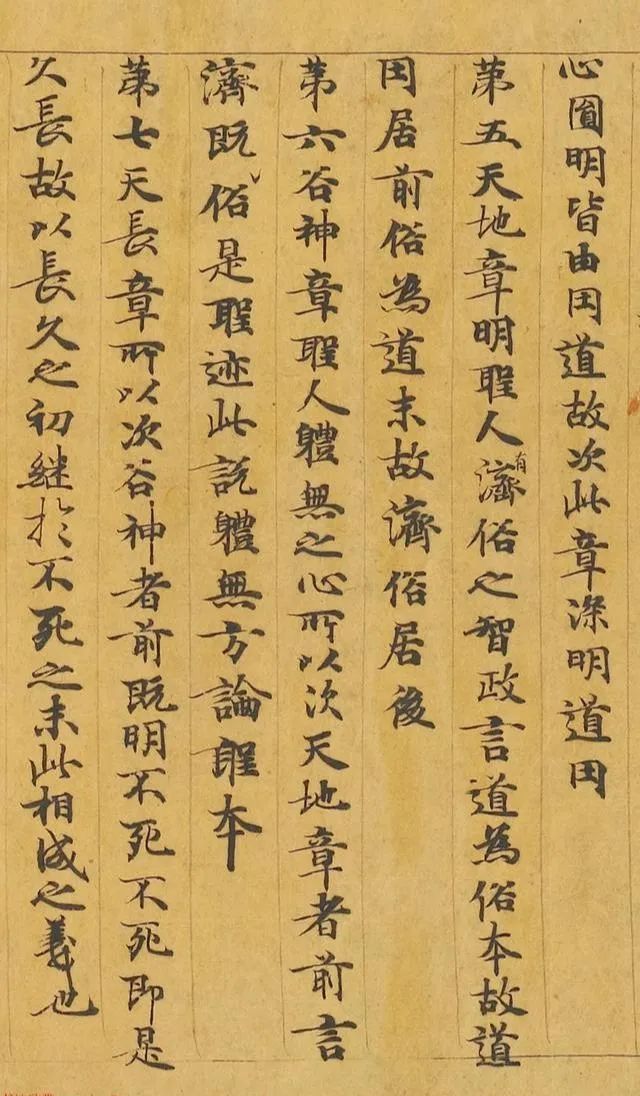 心圎明皆由田道故次此章深明道田
第五天地章明聖人有濟俗之智政言道為俗本故道
田居前俗為道末故濟俗居後
第六谷神章聖人軆無之心所以次天地章者前言
濟既俗是聖迹此説軆無方論聖本
第七天長章所以次谷神者前既明不死不死即是
久長故以長久之初継於不死之末此相成之義也